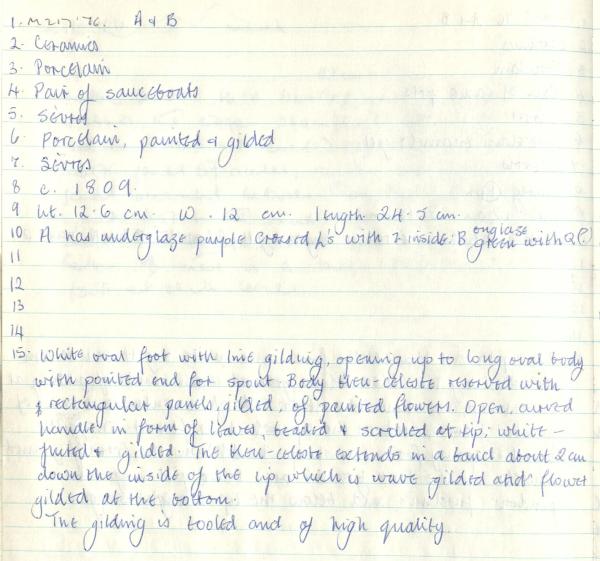 1. M217'76. A & B
2. Ceramics
3. Porcelain
4. Pair of sauceboats
5. Sèvres
6. Porcelain, painted & gilded
7. Sèvres
8 c. 1809.
9 ht. 12.6 cm. W. 12 cm. length 24.5 cm.
10 A has underglaze purple crossed L's with z inside: B onglaze green with Q(?)
11
12
13
14
15. White oval foot with line gilding, opening up to long oval body
with pointed end for spout. Body bleu-celeste reserved with
rectangular panels, gilded, of painted flowers. Open, curved
handle in form of leaves, beaded & scrolled at tip; white –
fluted & gilded. The bleu-celeste extends in a band about 2cm
down the inside of the lip which is wave gilded and flower
gilded at the bottom.
The gilding is tooled and of high quality.